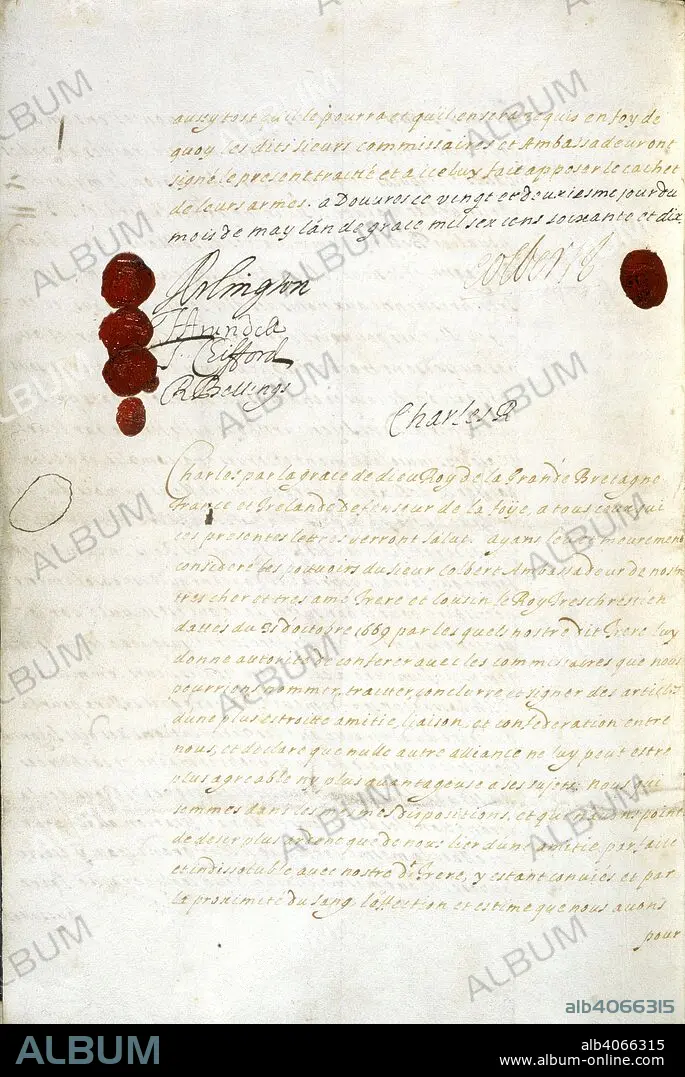 aussytost qu'il le pourra et qu'il en sera requis en foy de
quoy les dits sieurs commissaires et Ambassadeur ont
signé le present traitté et a iceluy fait apposer le cachet
de leurs armes. a Douvres ce vingt et deuxiesme jour du
mois de may l'an de grace mil six cens soixante et dix
Arlington
Colbert
T Arundell
T. Clifford
R Bellings
Charles R
Charles par la grace de dieu Roy de la Grande Bretagne
France et Irelande Defenseur de la foye, a tous ceux qui
ces presentes lettres verront Salut. ayans leu et meurement
consideré les pouvoirs du sieur Colbert Ambassadeur de nostre
tres cher et tres amé frere et Cousin le Roy Treschrestien
dattes du 31 d'octobre 1669 par les quels nostre dit frere luy
donne autorité de conferer avec les commissaires que nous
pourrions nommer, traitter, conclurre et signer des articles
d'une plus estroitte amitie, liaison, et confederation entre
nous, et declare que nulle autre alliance ne luy peut estre
plus agreable ny plus avantageuse a ses sujets. Nous qui
sommes dans les mesmes dispositions, et qui n'avons point
de desir plus ardent que de nous lier d'une amitie parfaite
et indissoluble avec nostre dt frere, y estant conviés et par
la proximité du sang, l'affection et estime que nous avons
pour
ALBUM
alb4066315
ALBUM
alb4066315
www.album-online.com